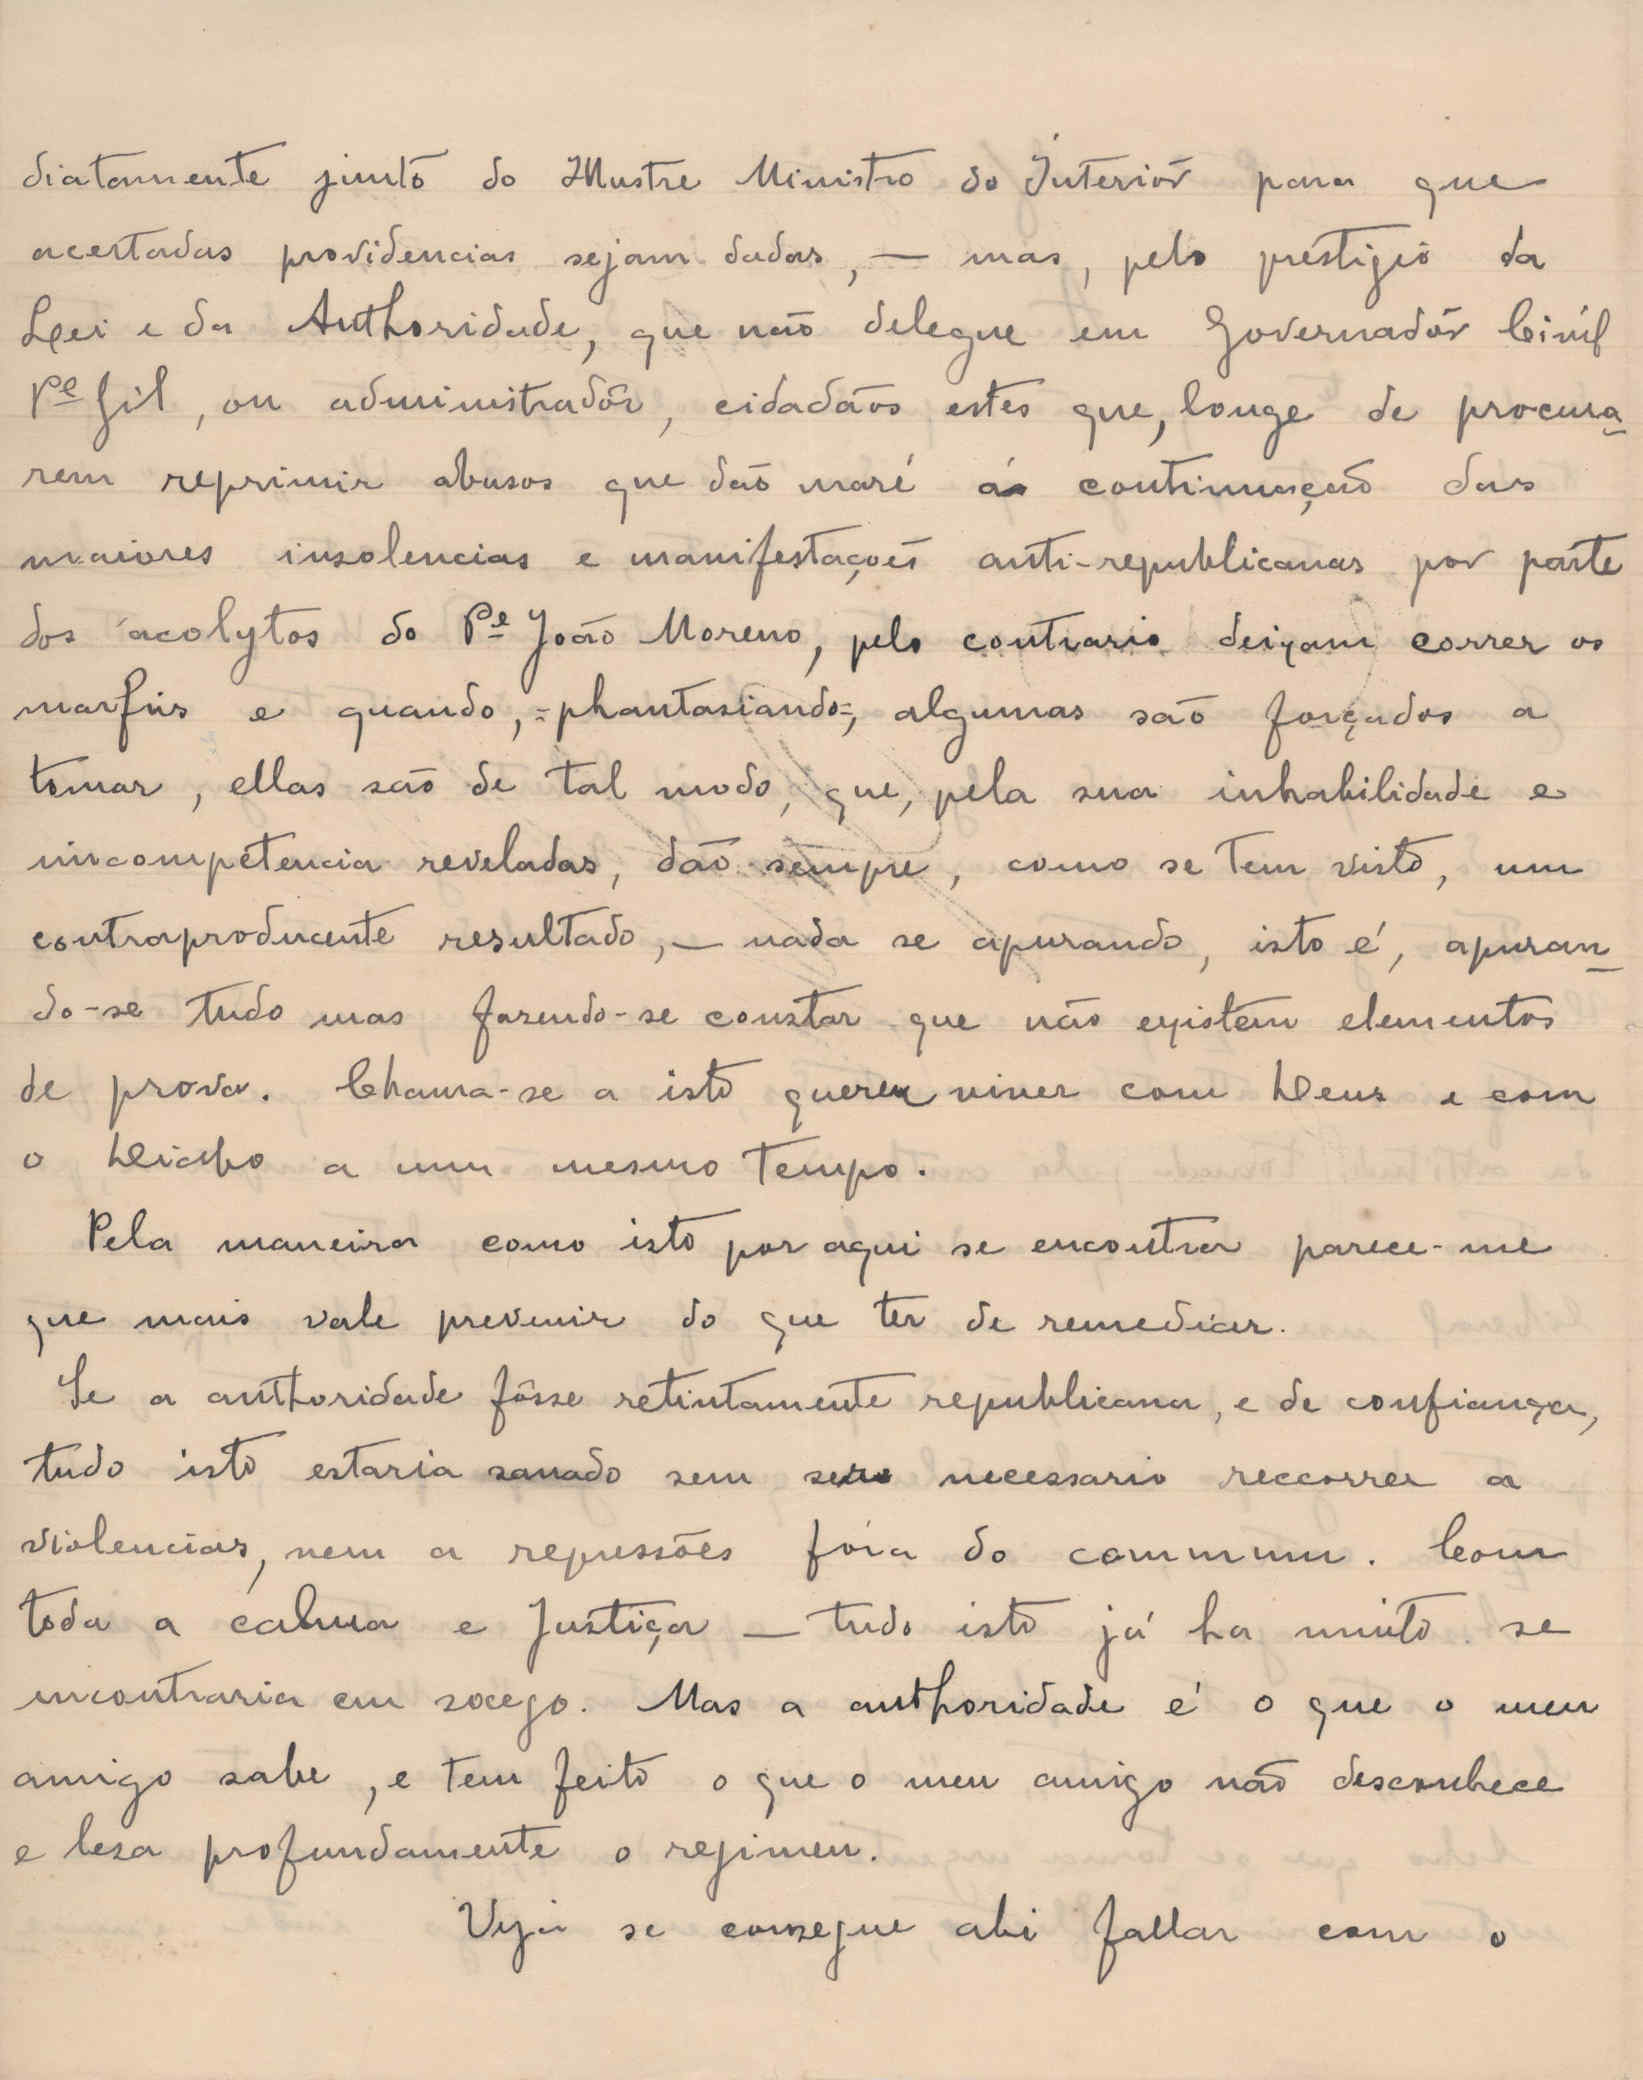 diatamente junto do Illustre Ministro do Interiôr para que
acertadas providencias sejam dadas, — mas, pelo prestigio da
Lei e da Authoridade, que não delegue em Governadôr Civil
Pe Gil, ou administradôr, cidadãos estes que, longe de procura-
rem reprimir abusos que dão maré á continuação das
maiores insolencias e manifestações anti-republicanas por parte
dos acolytos do Pe João Moreno, pelo contrario deixam correr os
marfins e quando, =phantasiando=, algumas são forçados a
tomar, ellas são de tal modo, que, pela sua inhabilidade e
incompetencia reveladas, dão sempre, como se tem visto, um
contraproducente resultado, — nada se apurando, isto é, apuran-
do-se tudo mas fazendo-se constar que não existem elementos
de prova. Chama-se a isto querer viver com Deus e com
o Diabo a um mesmo tempo.
Pela maneira como isto por aqui se encontra parece-me
que mais vale prevenir do que ter de remediar.
Se a authoridade fôsse retintamente republicana, e de confiança,
tudo isto estaria sanado sem ser necessario reccorrer a
violencias, nem a repressões fóra do commum. Com
toda a calma e Justiça — tudo isto já ha muito se
encontraria em socego. Mas a authoridade é o que o meu
amigo sabe, e tem feito o que o meu amigo não desconhece
e lesa profundamente o regimen.
Veja se consegue ahi fallar com o